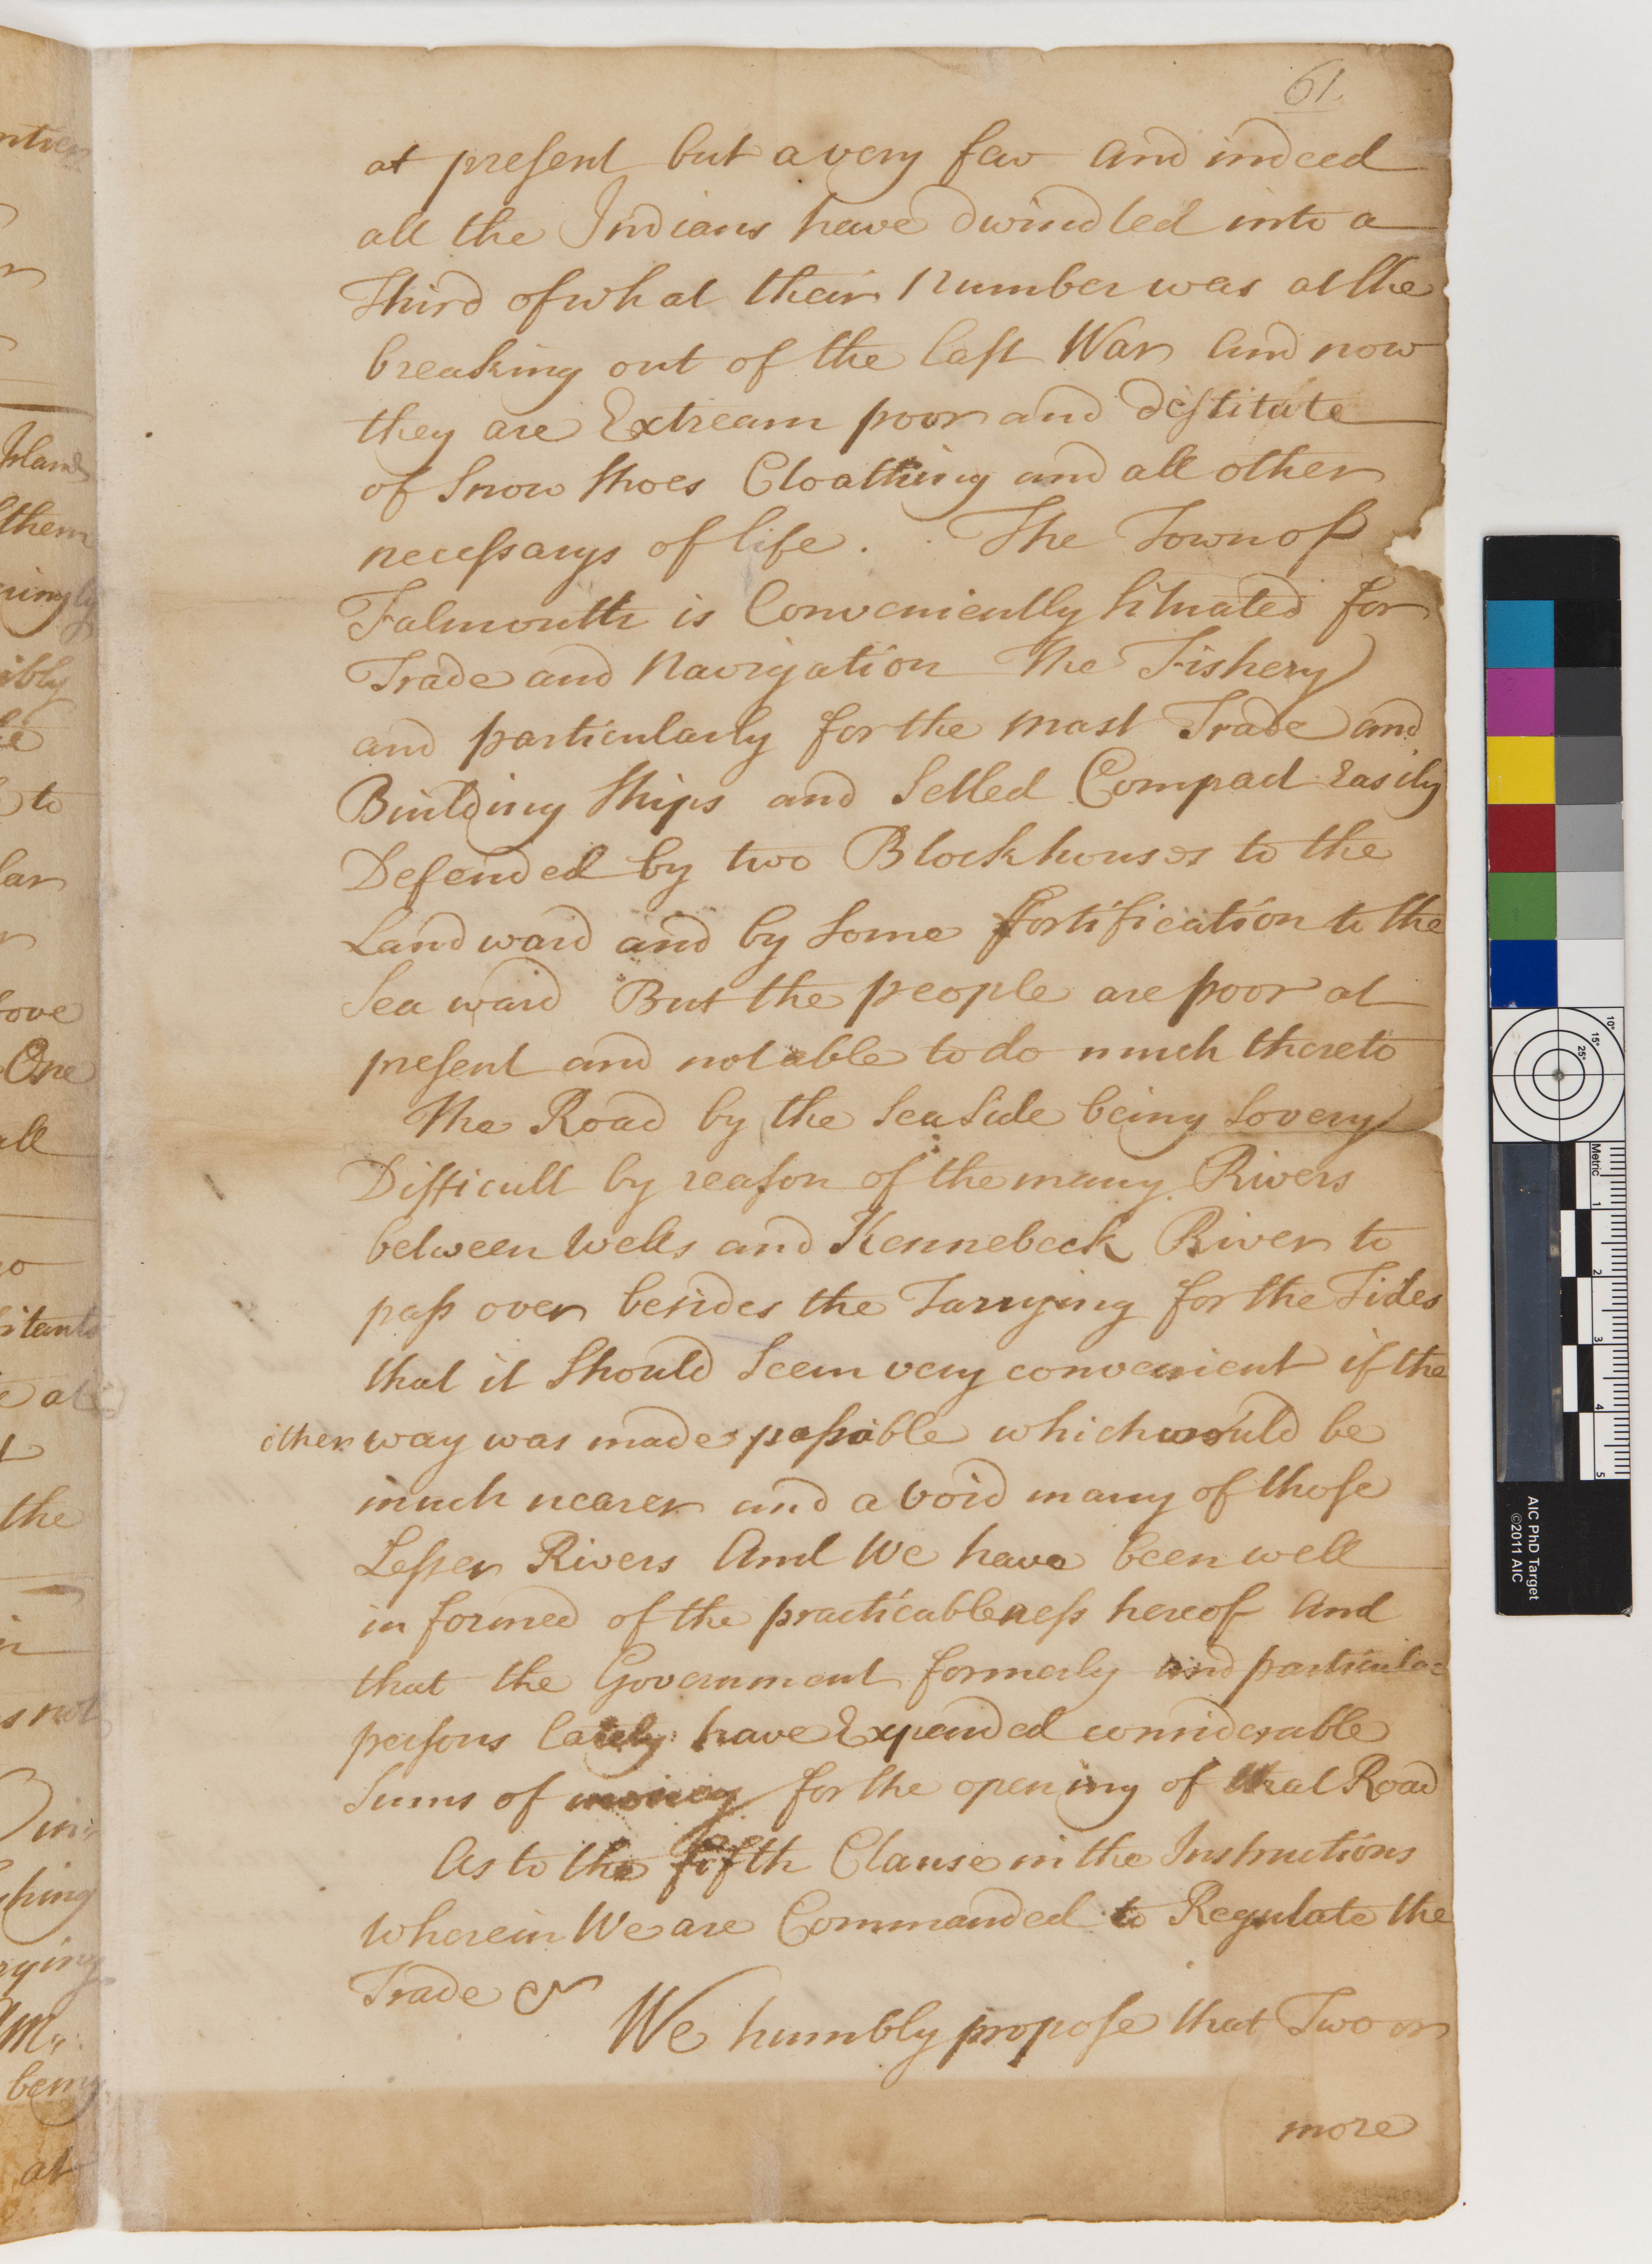 61.
at present but a very few And indeed
all the Indians have dwindled into a
Third of what their Number was at the
breaking out of the last War And now
they are Extream poor and destitute
of Snow shoes Cloathing and all other
necessarys of life. The Town of
Falmouth is Conveniently situated for
Trade and Navigation The Fishery
and particularly for the Mast Trade and
Building Ships and Setled Compact Easily
Defended by two Blockhouses to the
Land ward and by some Fortification to the
Sea ward But the people are poor at
present and not able to do much thereto
The Road by the Sea Side being so very
Difficult by reason of the many Rivers
between Wells and Kennebeck River to
pass over besides the Tarrying for the Tides
that it should seem very convenient if the
other way was made passable which would be
much nearer and avoid many of those
Lesser Rivers And We have been well
informed of the practicableness hereof And
that the Government formerly and particular
persons lately have Expended considerable
Sums of money for the opening of that Road
As to the fifth Clause in the Instructions
wherein We are Commanded to Regulate the
Trade &c
We humbly propose that Two or
more
ibly
to
ove
One
all
itants
at
the
in
s not
hing
being
at
Metric
1
2
3
4
5
10°
15°
25°
AIC PhD Target
©2011 AIC